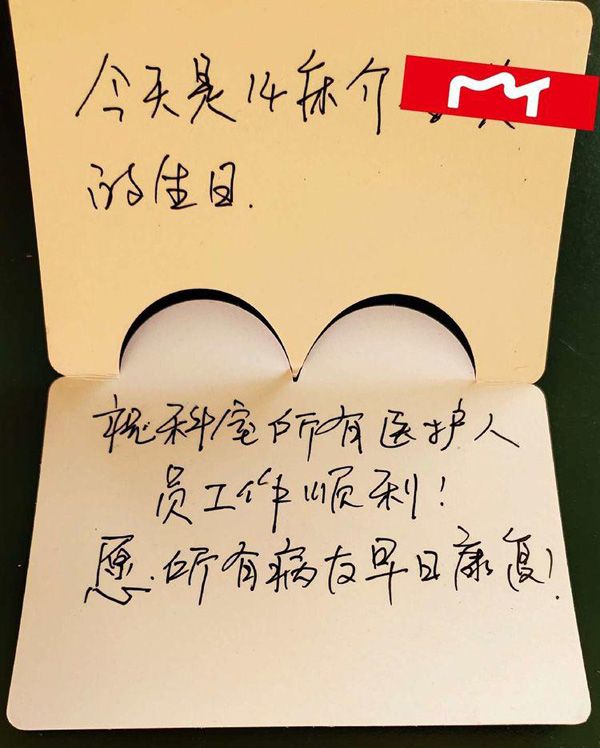 今天是14床介
的生日.
祝科室所有医护人
员工作顺利!
愿.所有病友早日康复!